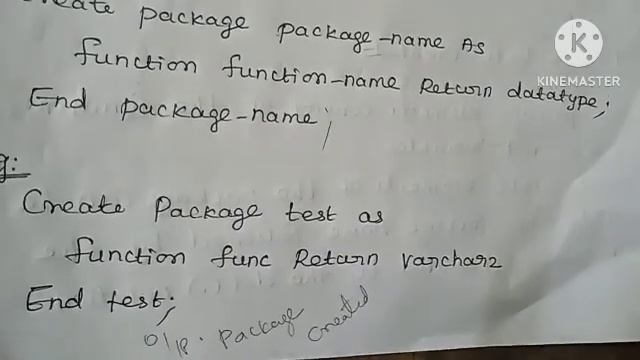 Create package package-name As
function function-name Return datatype;
End package-name;
g:
Create Package test as
function func Return varchar2
End test;
O/p. Package created
KINEMASTER